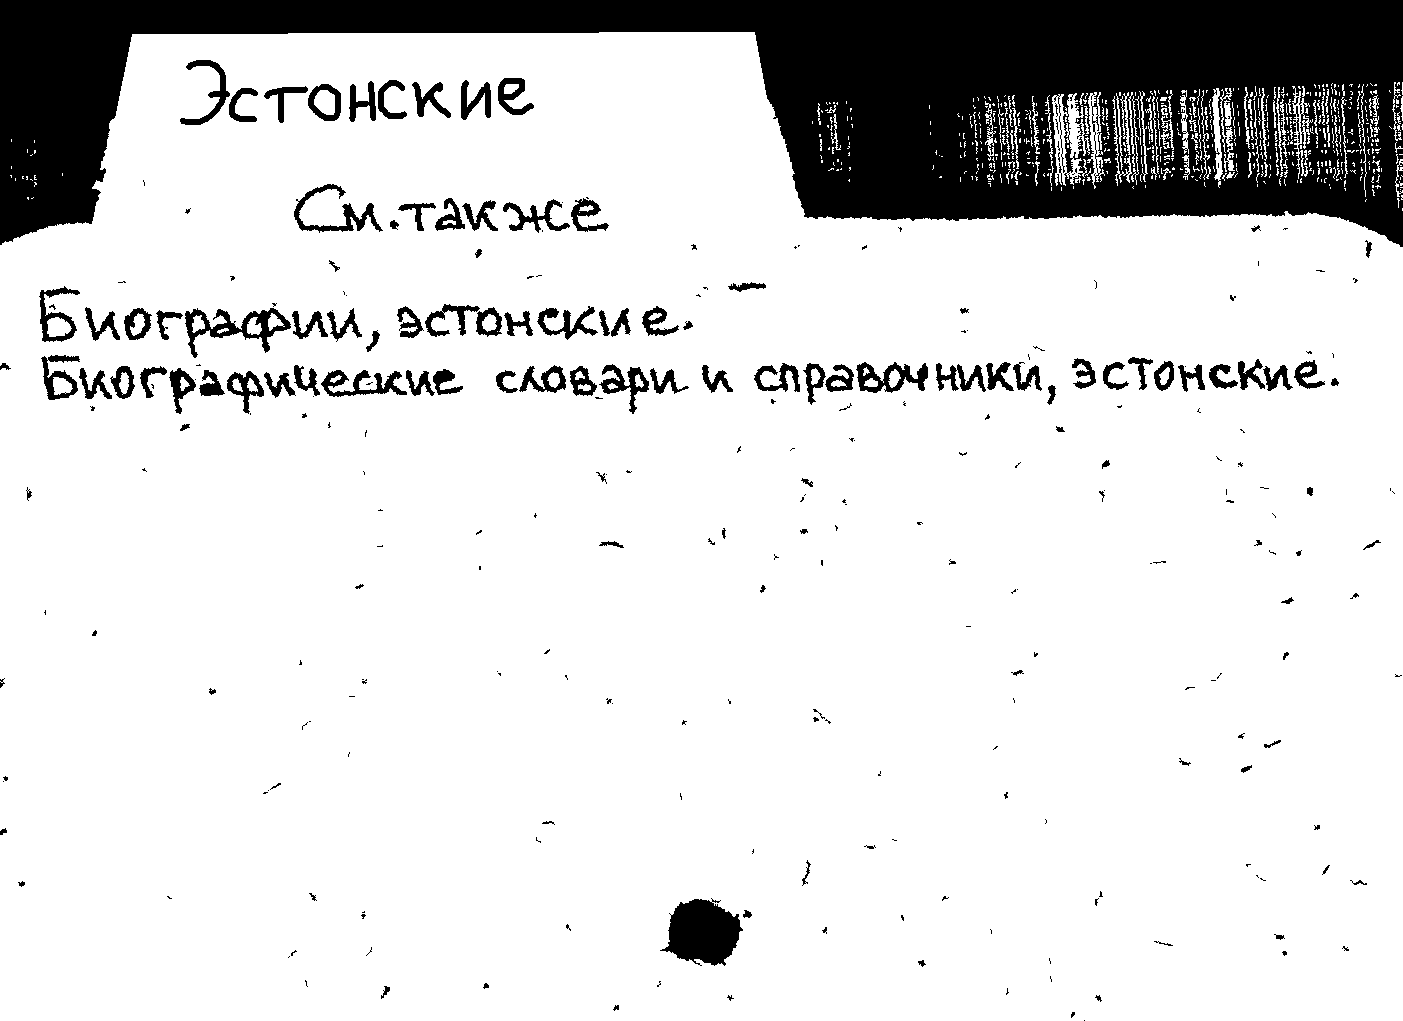 Эстонские
См. также
Биографии, эстонские.
Биографические словари и справочники, эстонские.